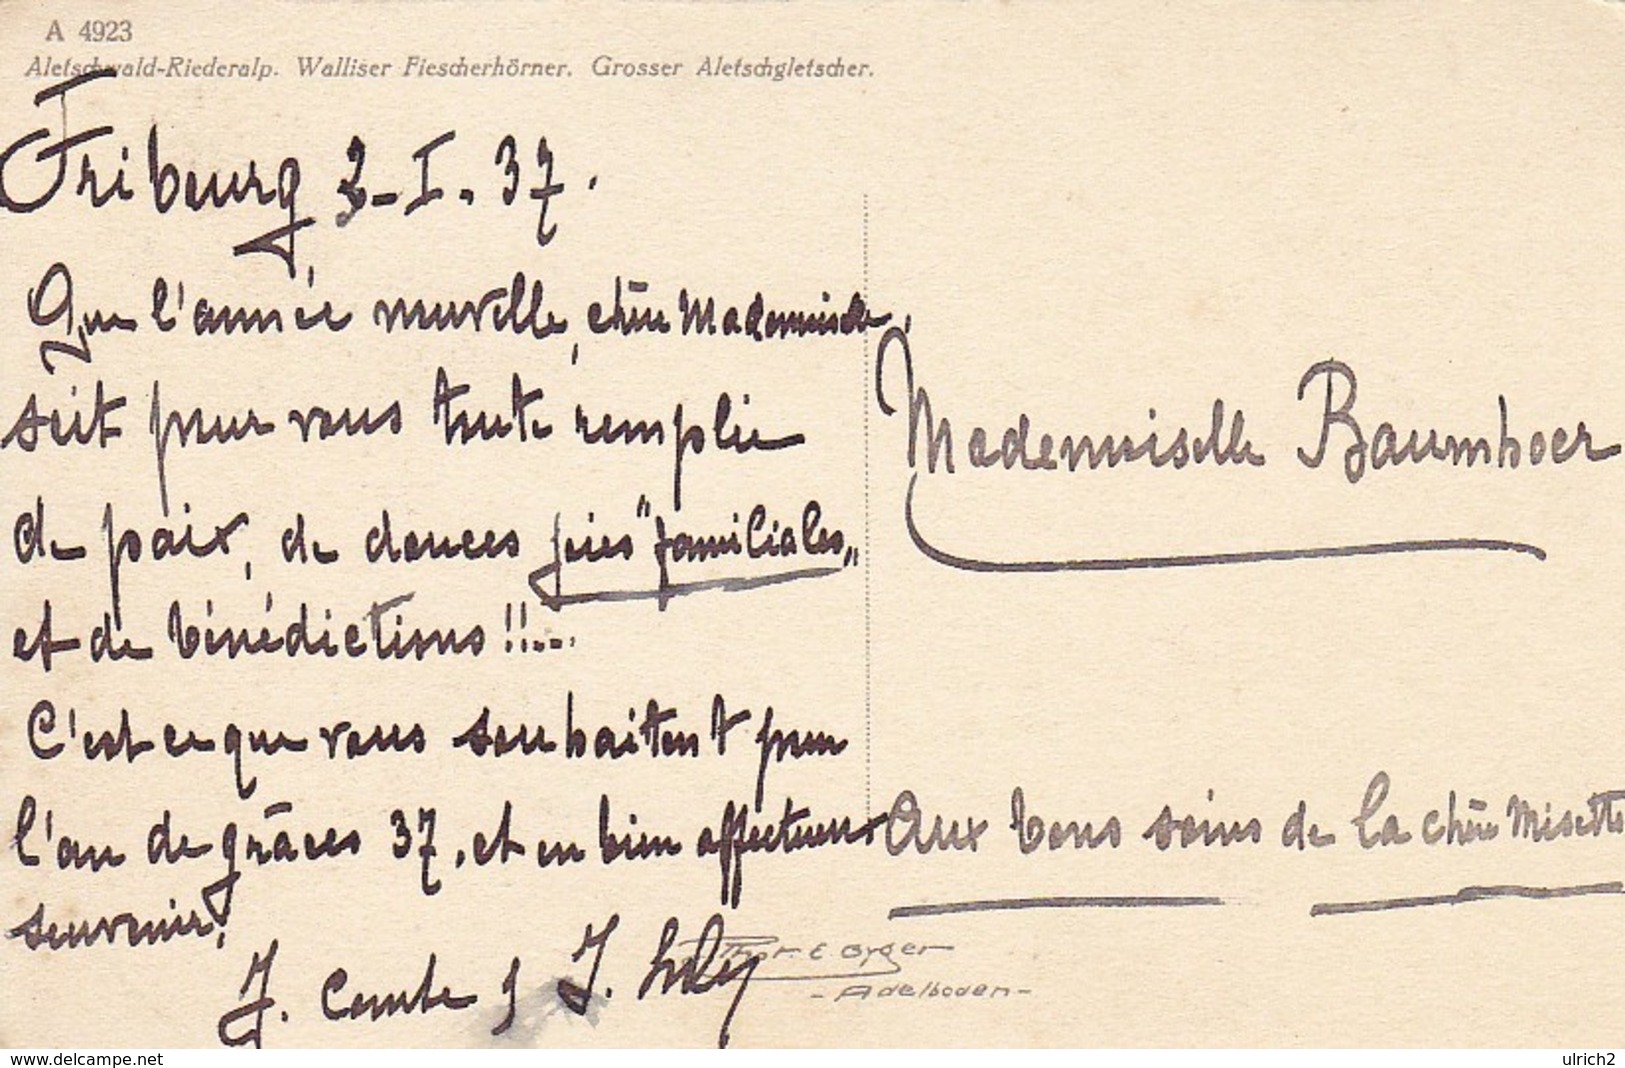 A 4923
Aletschwald-Riederalp. Walliser Fiescherhörner. Grosser Aletschgletscher.
Fribourg 2-I. 37.
Que l'année nouvelle, chère Mademoiselle,
soit pour vous toute remplie
de paix, de douces joies "familiales„
et de bénédictions !!...
C'est ce que vous souhaitent pour
l'an de grâces 37, et en bien affectueux
souvenir.
J. Comte J.
Mademoiselle Baumhoer
Aux bons soins de la chère Misette
E Gyger
- Adelboden -
www.delcampe.net
ulrich2